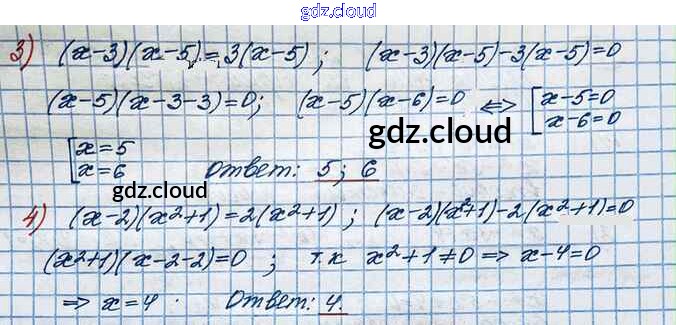 gdz.cloud
3) (x-3)(x-5)=3(x-5); (x-3)(x-5)-3(x-5)=0
(x-5)(x-3-3)=0; (x-5)(x-6)=0 ⟺ [x-5=0
x-6=0
gdz.cloud
[x=5
x=6 Ответ: 5; 6
gdz.cloud
4) (x-2)(x²+1)=2(x²+1); (x-2)(x²+1)-2(x²+1)=0
(x²+1)(x-2-2)=0; т.к x²+1≠0 ⟹ x-4=0
⟹ x=4. Ответ: 4.